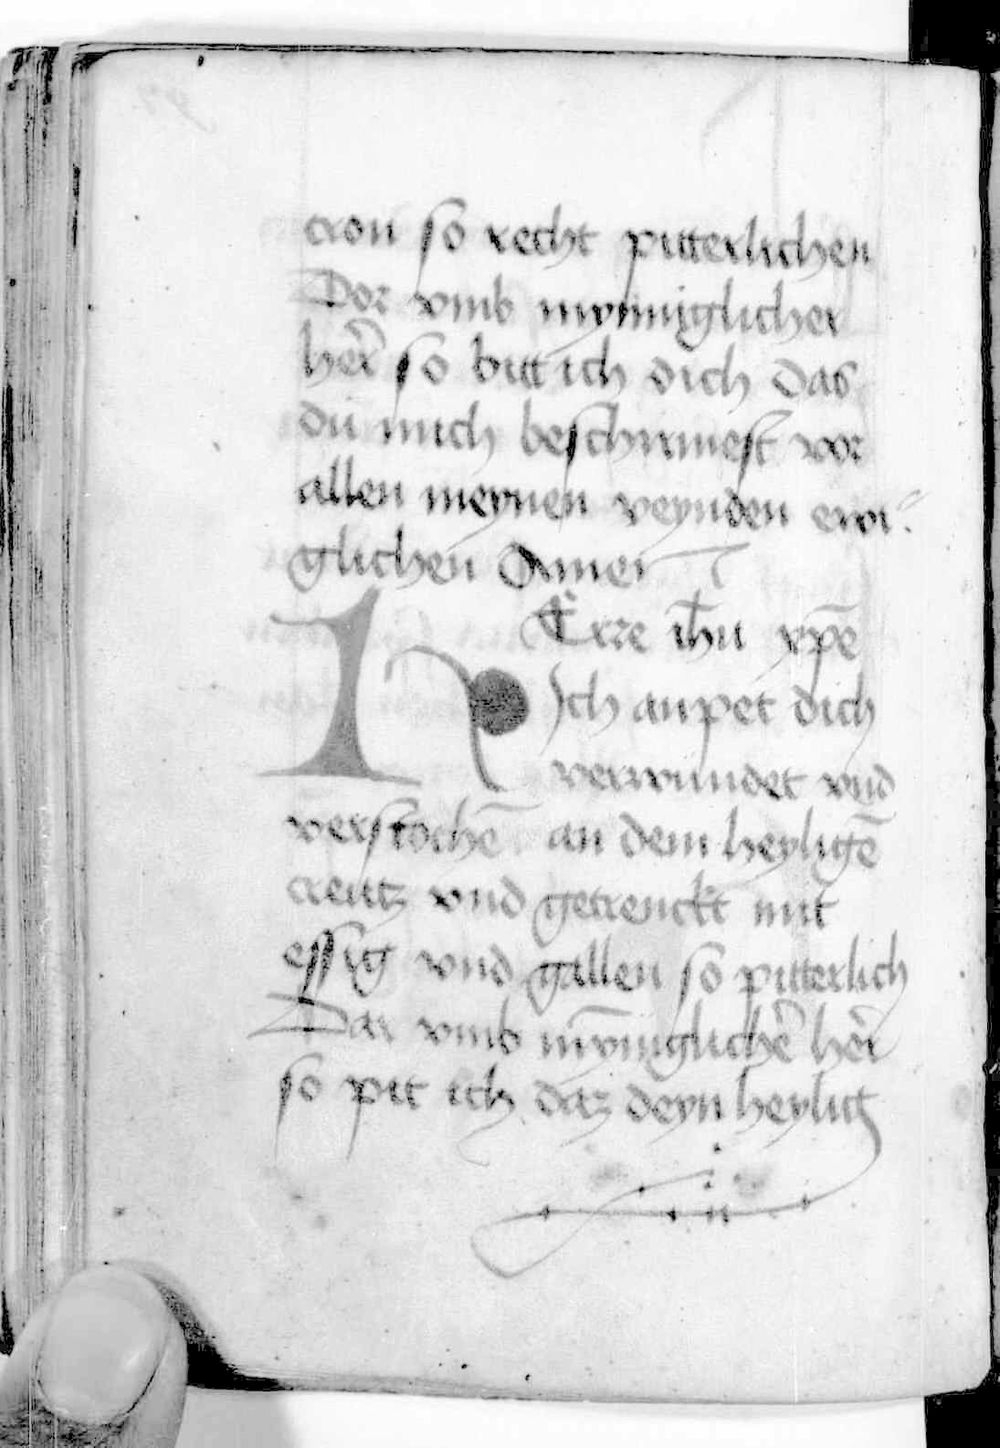 cron so recht pitterlichen
Dor vmb mynniglicher
her̃ so bitt ich dich das
du mich beschirmest vor
allen meynen veynden ewi
glichen Amen
HErre ih̄u xp̄e
Ich anpet dich
verwundet vnd
verstochē an dem heyligē
creutz vnd getrenckt mit
essig vnd gallen so pitterlich
Dar vmb mȳniglichē her̃
so pit ich daz deyn heylig